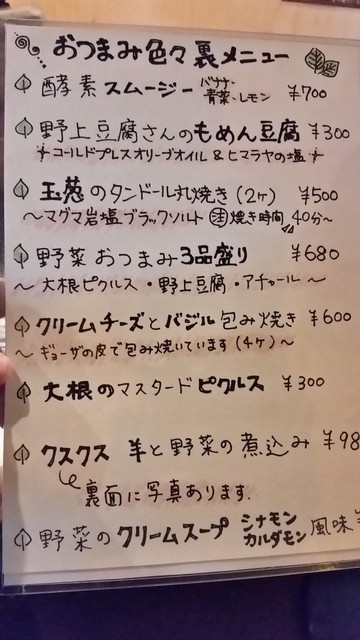 おつまみ色々裏メニュー
酵素スムージー バナナ・青菜・レモン ¥700
野上豆腐さんのもめん豆腐 ¥300
コールドプレスオリーブオイル&ヒマラヤの塩
玉葱のタンドール丸焼き(2ヶ) ¥500
〜マグマ岩塩ブラックソルト 注 焼き時間、40分〜
野菜おつまみ3品盛り ¥680
〜大根ピクルス・野上豆腐・アチャール〜
クリームチーズとバジル包み焼き ¥600
〜ギョーザの皮で包み焼いています(4ヶ)〜
大根のマスタードピクルス ¥300
クスクス 羊と野菜の煮込み ¥98
裏面に写真あります.
野菜のクリームスープ シナモン カルダモン 風味